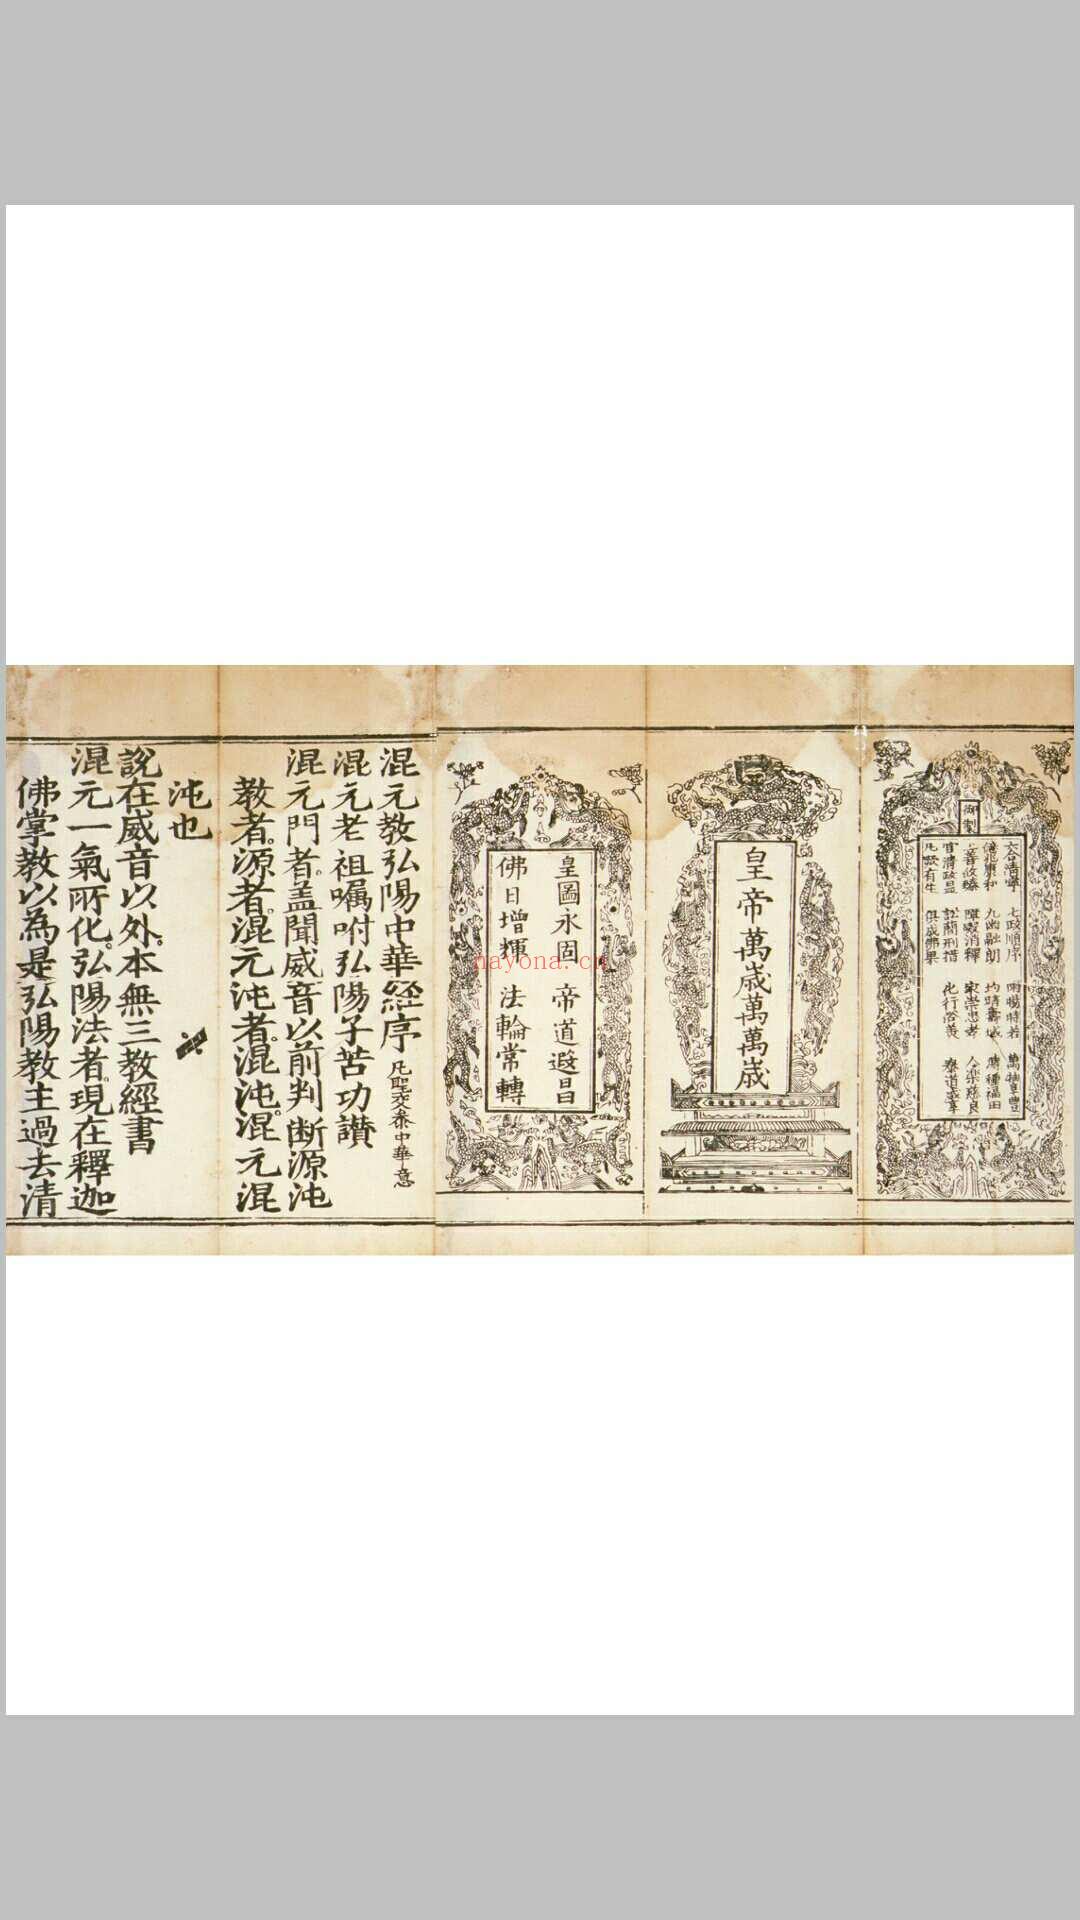 御制
六合清寧 七政順序 雨暘時若 萬物阜豐
億兆康和 九幽融朗 均躋壽域 溥種福田
上善攸臻 障礙消釋 家崇忠孝 人樂慈良
官清政 訟簡刑措 化行俗美 泰道咸亨
凡厥有生 俱成佛果
皇帝萬歲萬萬歲
皇圖永固 帝道遐昌
佛日增輝 法輪常轉
混元教弘陽中華經序 凡聖交叅中華意
混元老祖囑咐弘陽子苦功讃
混元門者。盖聞威音以前判断源沌
教者。源者。混元沌者。混沌。混元混
沌也
說在威音以外。本無三教經書
混元一氣所化。弘陽法者。現在釋迦
佛掌教以為是弘陽教主過去清
nayona.cn